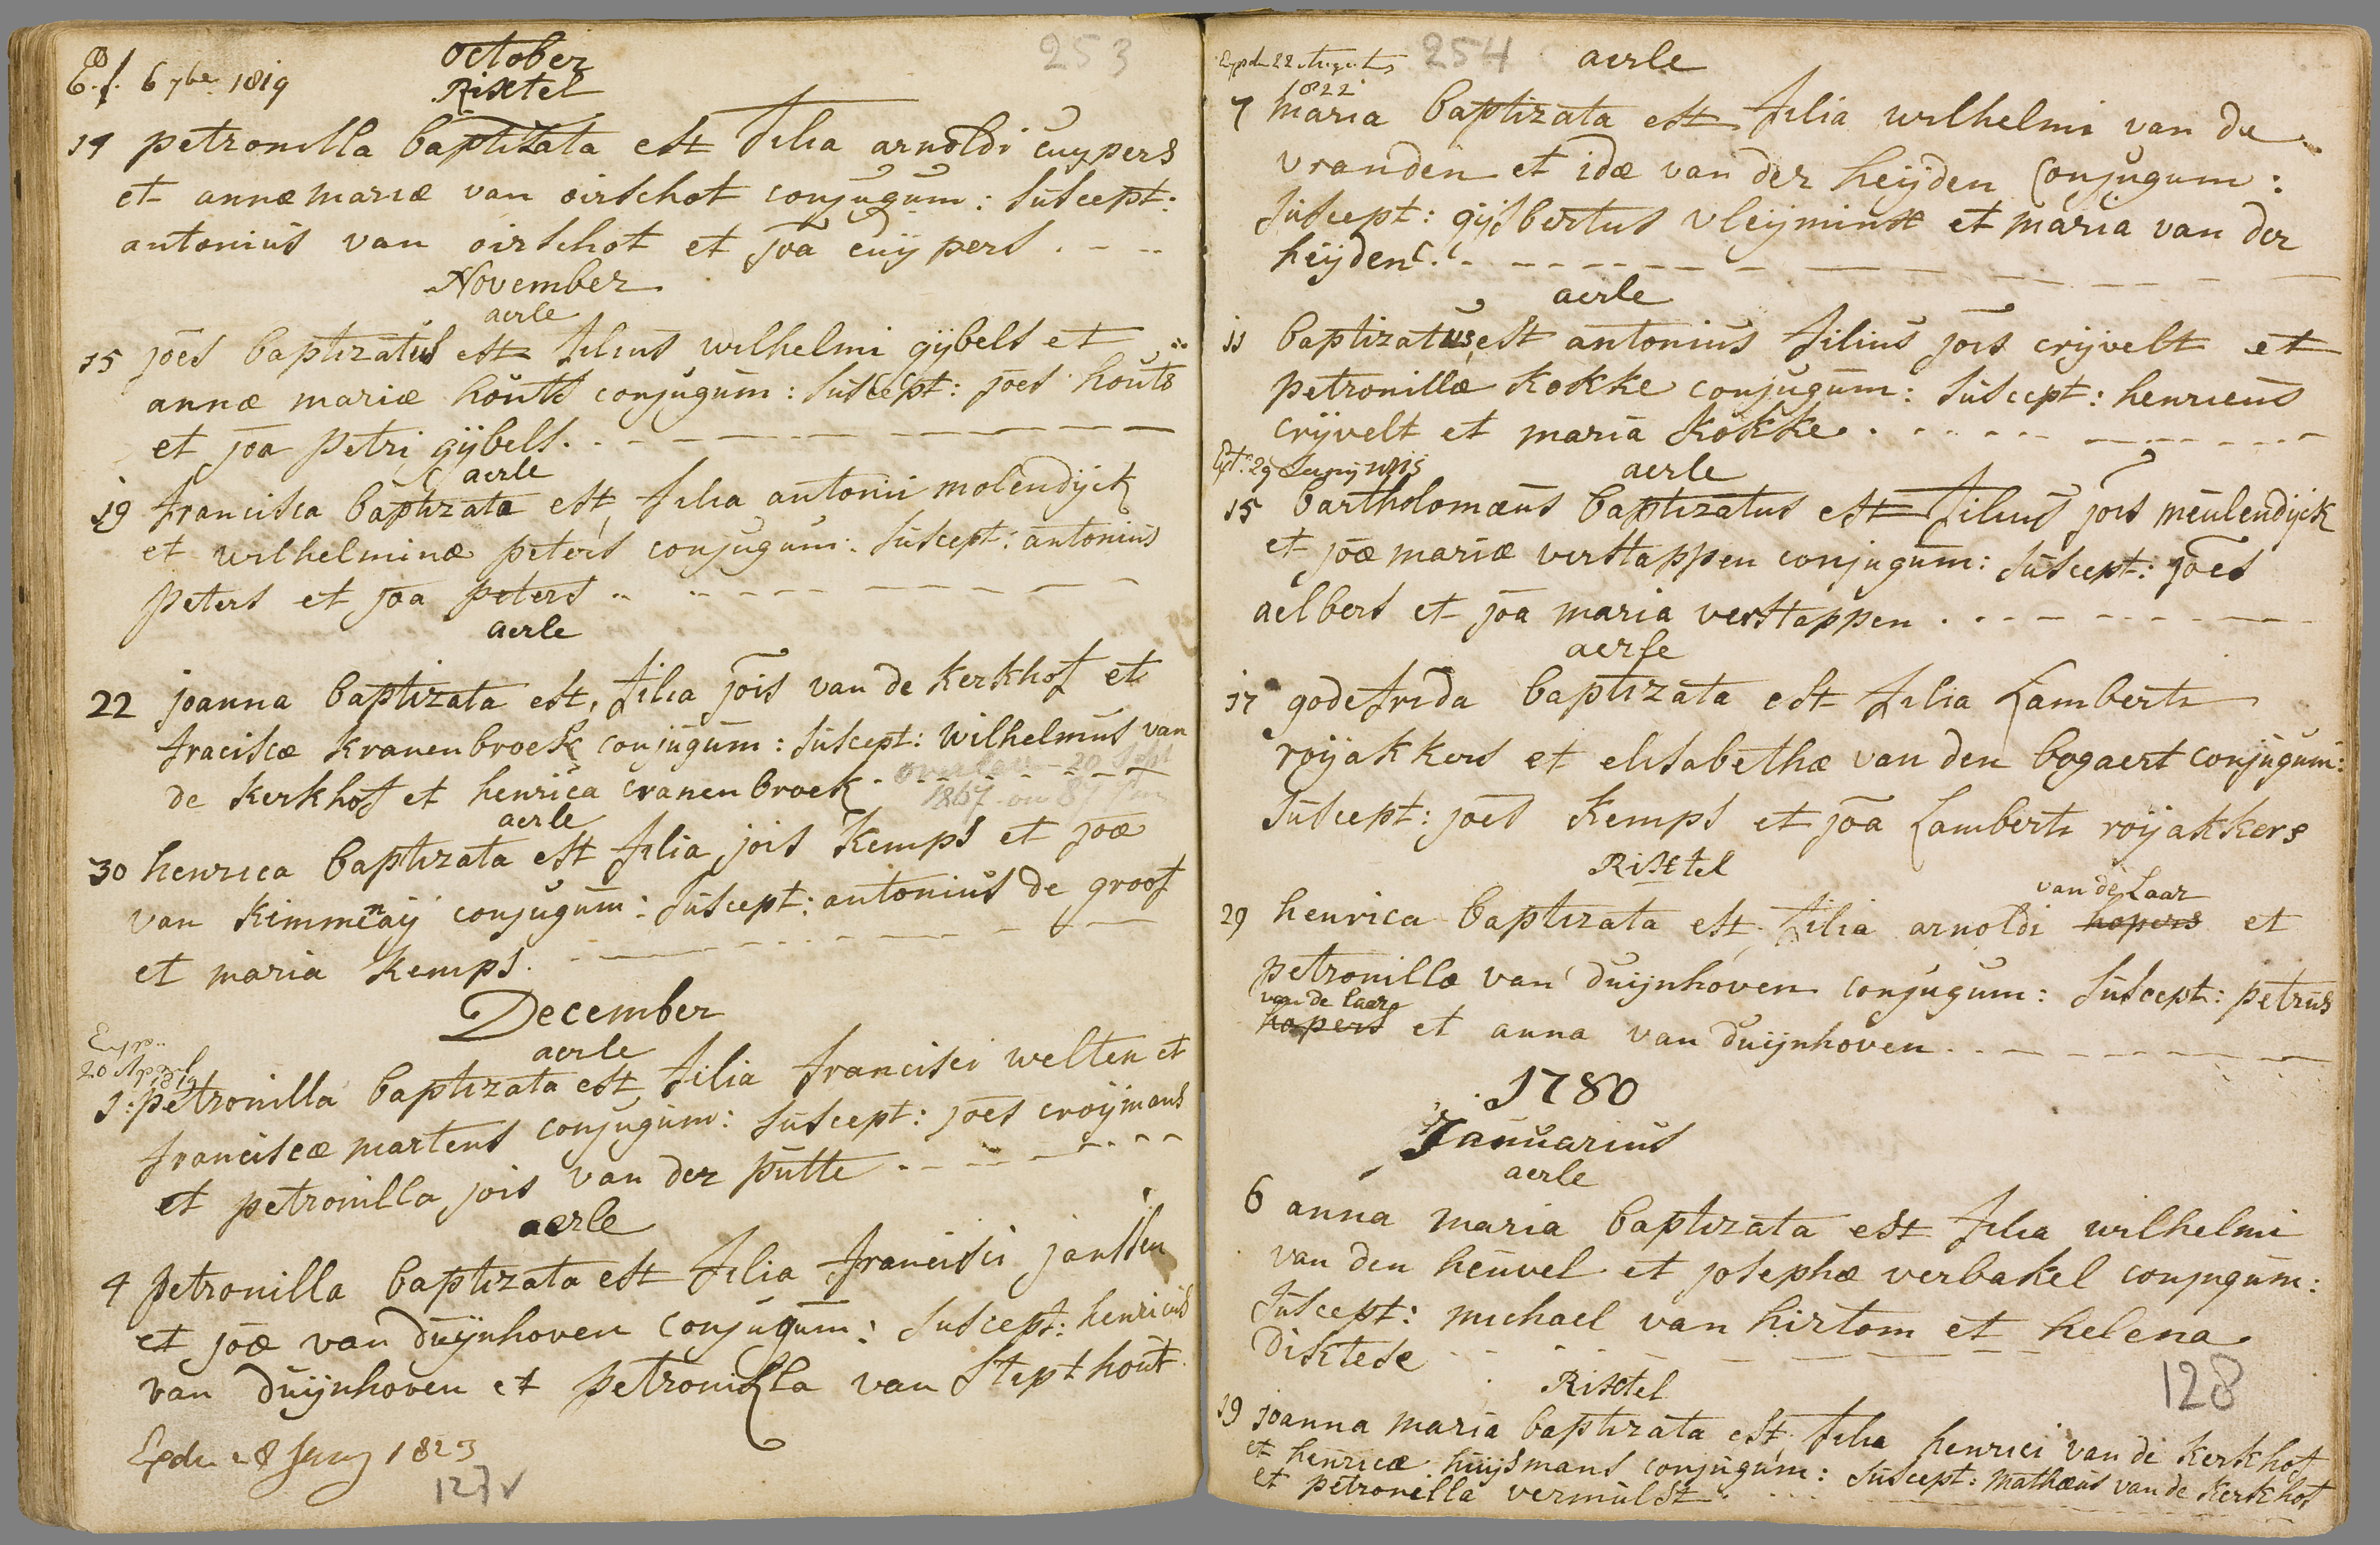 E.f. 6 7ber 1819
October
253
Rixtel
14 petronilla baptizata est filia arnoldi cuypers
et annæ mariæ van oirschot conjugum: suscept:
antonius van oirschot et joa cuÿpers . - --
November
aerle
15 joēs baptizatus est filius wilhelmi gÿbels et
annæ mariæ houts conjugum: suscept: joes houts
et joa petri gÿbels.
aerle
19 francisca baptizata est filia antonii molendÿck
et wilhelminæ peters conjugum: suscept: antonius
peters et joa peters
aerle
22 joanna baptizata est, filia joīs van de kerkhof et
fraciscæ kranenbroek conjugum: suscept: wilhelmus van
de kerkhof et henrica cranenbroek. overleden 20 Sept
1867 en 87
aerle
30 henrica baptizata est filia jois kemps et joæ
van kimmenaÿ conjugum: suscept: antonius de groof
et maria kemps.
December
Exp..
20 April 1819
aerle
1: petronilla baptizata est, filia francisci welten et
franciscæ martens conjugum: suscept: joes croÿmans
et petronilla jois van der putte
aerle
4 petronilla baptizata est filia francisci janssen
et joæ van duÿnhoven conjugum: suscept: henricus
van duÿnhoven et petronilla van Stepthout
Expdu 28 Junij 1823
127v
Expdu 22 Augusti
1822
254
aerle
7 maria baptizata est filia wilhelmi van de
vranden et idæ van der heÿden conjugum:
suscept: gÿsbertus vleÿminx et maria van der
heÿden.
aerle
11 baptizatus est antonius filius joīs crÿvelt et
petronillæ kokke conjugum: suscept: henricus
crÿvelt et maria kokke.
Ept. 29 Junij
aerle
15 bartholomæus baptizatus est filius jois meulendÿck
et joæ mariæ verstappen conjugum: suscept: joēs
aelbers et joa maria verstappen
aerle
17 godefrida baptizata est filia Lamberti
roÿakkers et elisabethæ van den bogaert conjugum:
suscept: joēs kemps et joa Lamberti roÿakkers
Rixtel
van de Laar
29 henrica baptizata est, filia arnoldi hopers et
petronillæ van duijnhoven conjugum: suscept: petrus
van de laar
hopers et anna van duijnhoven
1780
Januarius
aerle
6 anna maria baptizata est filia wilhelmi
van den heuvel et josephæ verbakel conjugum:
suscept: michael van hirtom et helena
disktese
Rixtel
128
19 joanna maria baptizata est, filia henrici van de kerkhof
et henricæ huijsmans conjugum: suscept: mathæus van de kerkhof
et petronilla vermulst